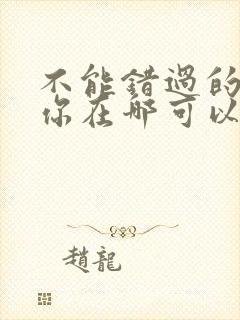 不能錯過的
你在哪可以
趙龍